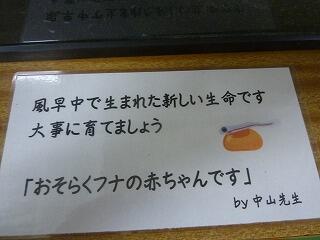 風早中で生まれた新しい生命です
大事に育てましょう
「おそらくフナの赤ちゃんです」
by 中山先生